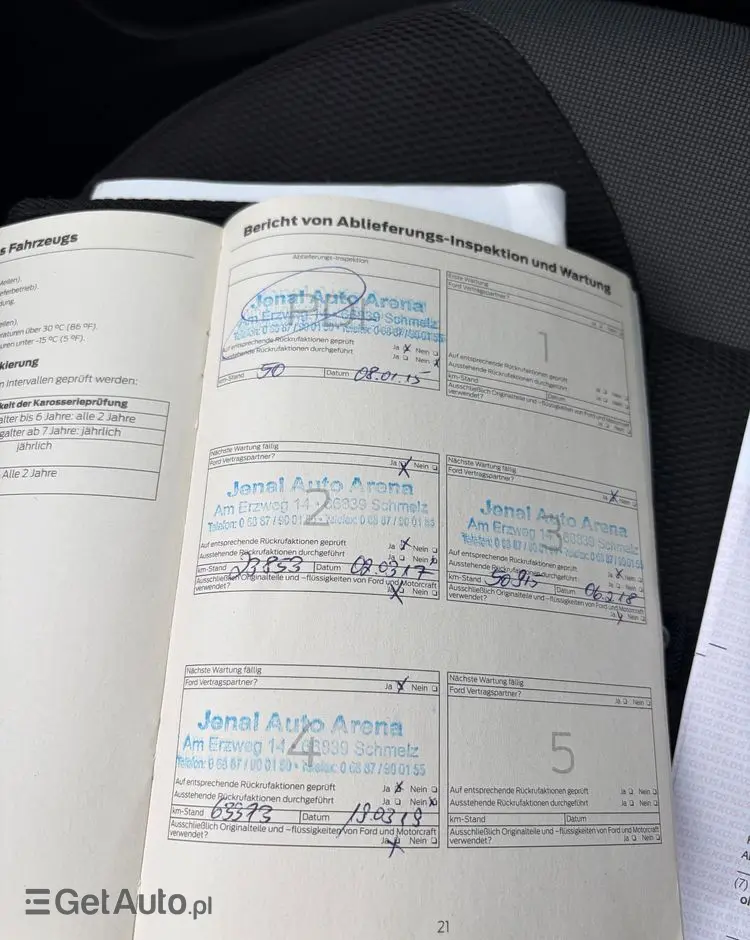 s Fahrzeugs
Meilen).
eferbetrieb).
dung.
eilen).
raturen über 30 °C (86 °F).
uren unter -15 °C (5 °F).
kierung
n Intervallen geprüft werden:
keit der Karosserieprüfung
alter bis 6 Jahre: alle 2 Jahre
galter ab 7 Jahre: jährlich
jährlich
Alle 2 Jahre
Bericht von Ablieferungs-Inspektion und Wartung
Ablieferungs-Inspektion
Jenal Auto Arena
Am Erzweg 14 • 66839 Schmelz
Telefon: 0 68 87 / 90 01 80 • Telefax: 0 68 87 / 90 01 55
Auf entsprechende Rückrufaktionen geprüft Ja Nein
Ausstehende Rückrufaktionen durchgeführt Ja Nein
km-Stand 50 Datum 08.01.15
Erste Wartung
Ford Vertragspartner?
Ja Nein
1
Auf entsprechende Rückrufaktionen geprüft Ja Nein
Ausstehende Rückrufaktionen durchgeführt Ja Nein
km-Stand Datum
Ausschließlich Originalteile und -flüssigkeiten von Ford und Motorcraft
verwendet? Ja Nein
Nächste Wartung fällig
Ford Vertragspartner? Ja Nein
2
Jenal Auto Arena
Am Erzweg 14 • 66839 Schmelz
Telefon: 0 68 87 / 90 01 80 • Telefax: 0 68 87 / 90 01 55
Auf entsprechende Rückrufaktionen geprüft Ja Nein
Ausstehende Rückrufaktionen durchgeführt Ja Nein
km-Stand 23853 Datum 08.03.17
Ausschließlich Originalteile und -flüssigkeiten von Ford und Motorcraft
verwendet? Ja Nein
Nächste Wartung fällig
Ford Vertragspartner? Ja Nein
3
Jenal Auto Arena
Am Erzweg 14 • 66839 Schmelz
Auf entsprechende Rückrufaktionen geprüft Ja Nein
Ausstehende Rückrufaktionen durchgeführt Ja Nein
km-Stand Datum 06.2.18
Ausschließlich Originalteile und -flüssigkeiten von Ford und Motorcraft
verwendet? Ja Nein
Nächste Wartung fällig
Ford Vertragspartner? Ja Nein
4
Jenal Auto Arena
Am Erzweg 14 • 66839 Schmelz
Telefon: 0 68 87 / 90 01 80 • Telefax: 0 68 87 / 90 01 55
Auf entsprechende Rückrufaktionen geprüft Ja Nein
Ausstehende Rückrufaktionen durchgeführt Ja Nein
km-Stand 63373 Datum 19.03.19
Ausschließlich Originalteile und -flüssigkeiten von Ford und Motorcraft
verwendet? Ja Nein
Nächste Wartung fällig
Ford Vertragspartner? Ja Nein
5
Auf entsprechende Rückrufaktionen geprüft Ja Nein
Ausstehende Rückrufaktionen durchgeführt Ja Nein
km-Stand Datum
Ausschließlich Originalteile und -flüssigkeiten von Ford und Motorcraft
verwendet? Ja Nein
21
(7)
GetAuto.pl